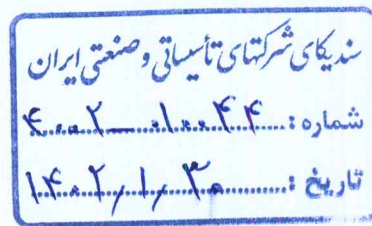 سندیکای شرکتهای تأسیساتی و صنعتی ایران
شماره: ۴۰۰۲-۱۰۰۴۴
تاریخ: ۱۴۰۲/۱/۳۰